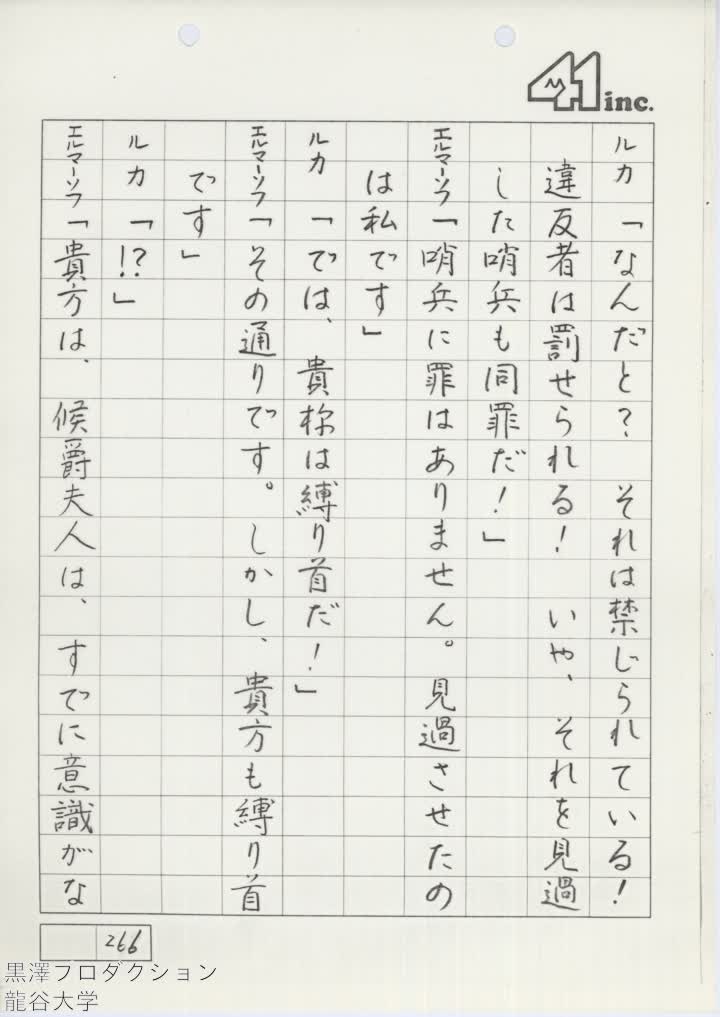 41 inc.
ルカ「なんだと？　それは禁じられている！
違反者は罰せられる！　いや、それを見過
した哨兵も同罪だ！」
エルマーソフ「哨兵に罪はありません。見過させたの
は私です」
ルカ「では、貴様は縛り首だ！」
エルマーソフ「その通りです。しかし、貴方も縛り首
です」
ルカ「!?」
エルマーソフ「貴方は、候爵夫人は、すでに意識がな
266
黒澤プロダクション
龍谷大学